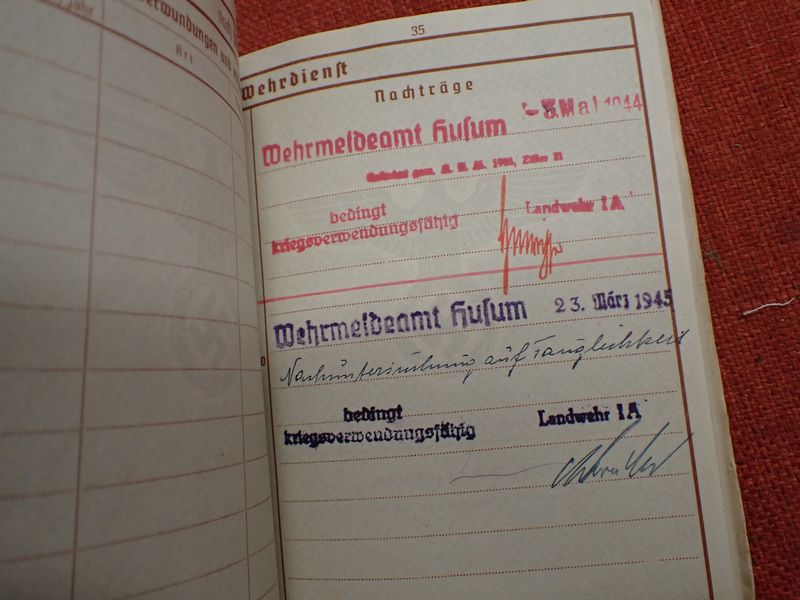 Jahr
Verwundungen und
Art
35
Wehrdienst
Nachträge
Wehrmeldeamt Husum - 3. Mai 1944
gem.
bedingt
kriegsverwendungsfähig
Landwehr I A
Wehrmeldeamt Husum 23. März 1945
Nachuntersuchung auf Tauglichkeit
bedingt
kriegsverwendungsfähig
Landwehr I A